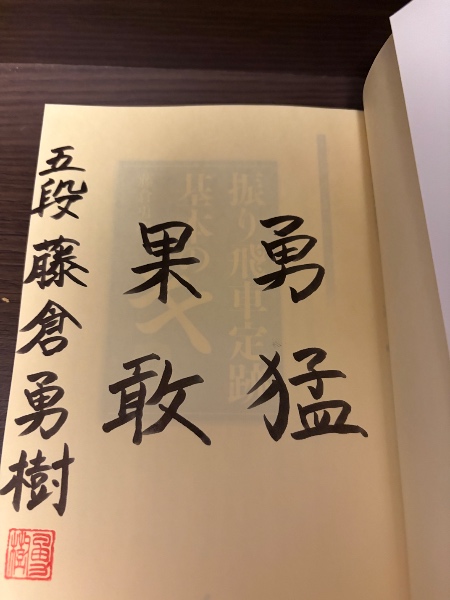 勇猛
果敢
五段 藤倉勇樹
勇樹
振り飛車定跡
基本の